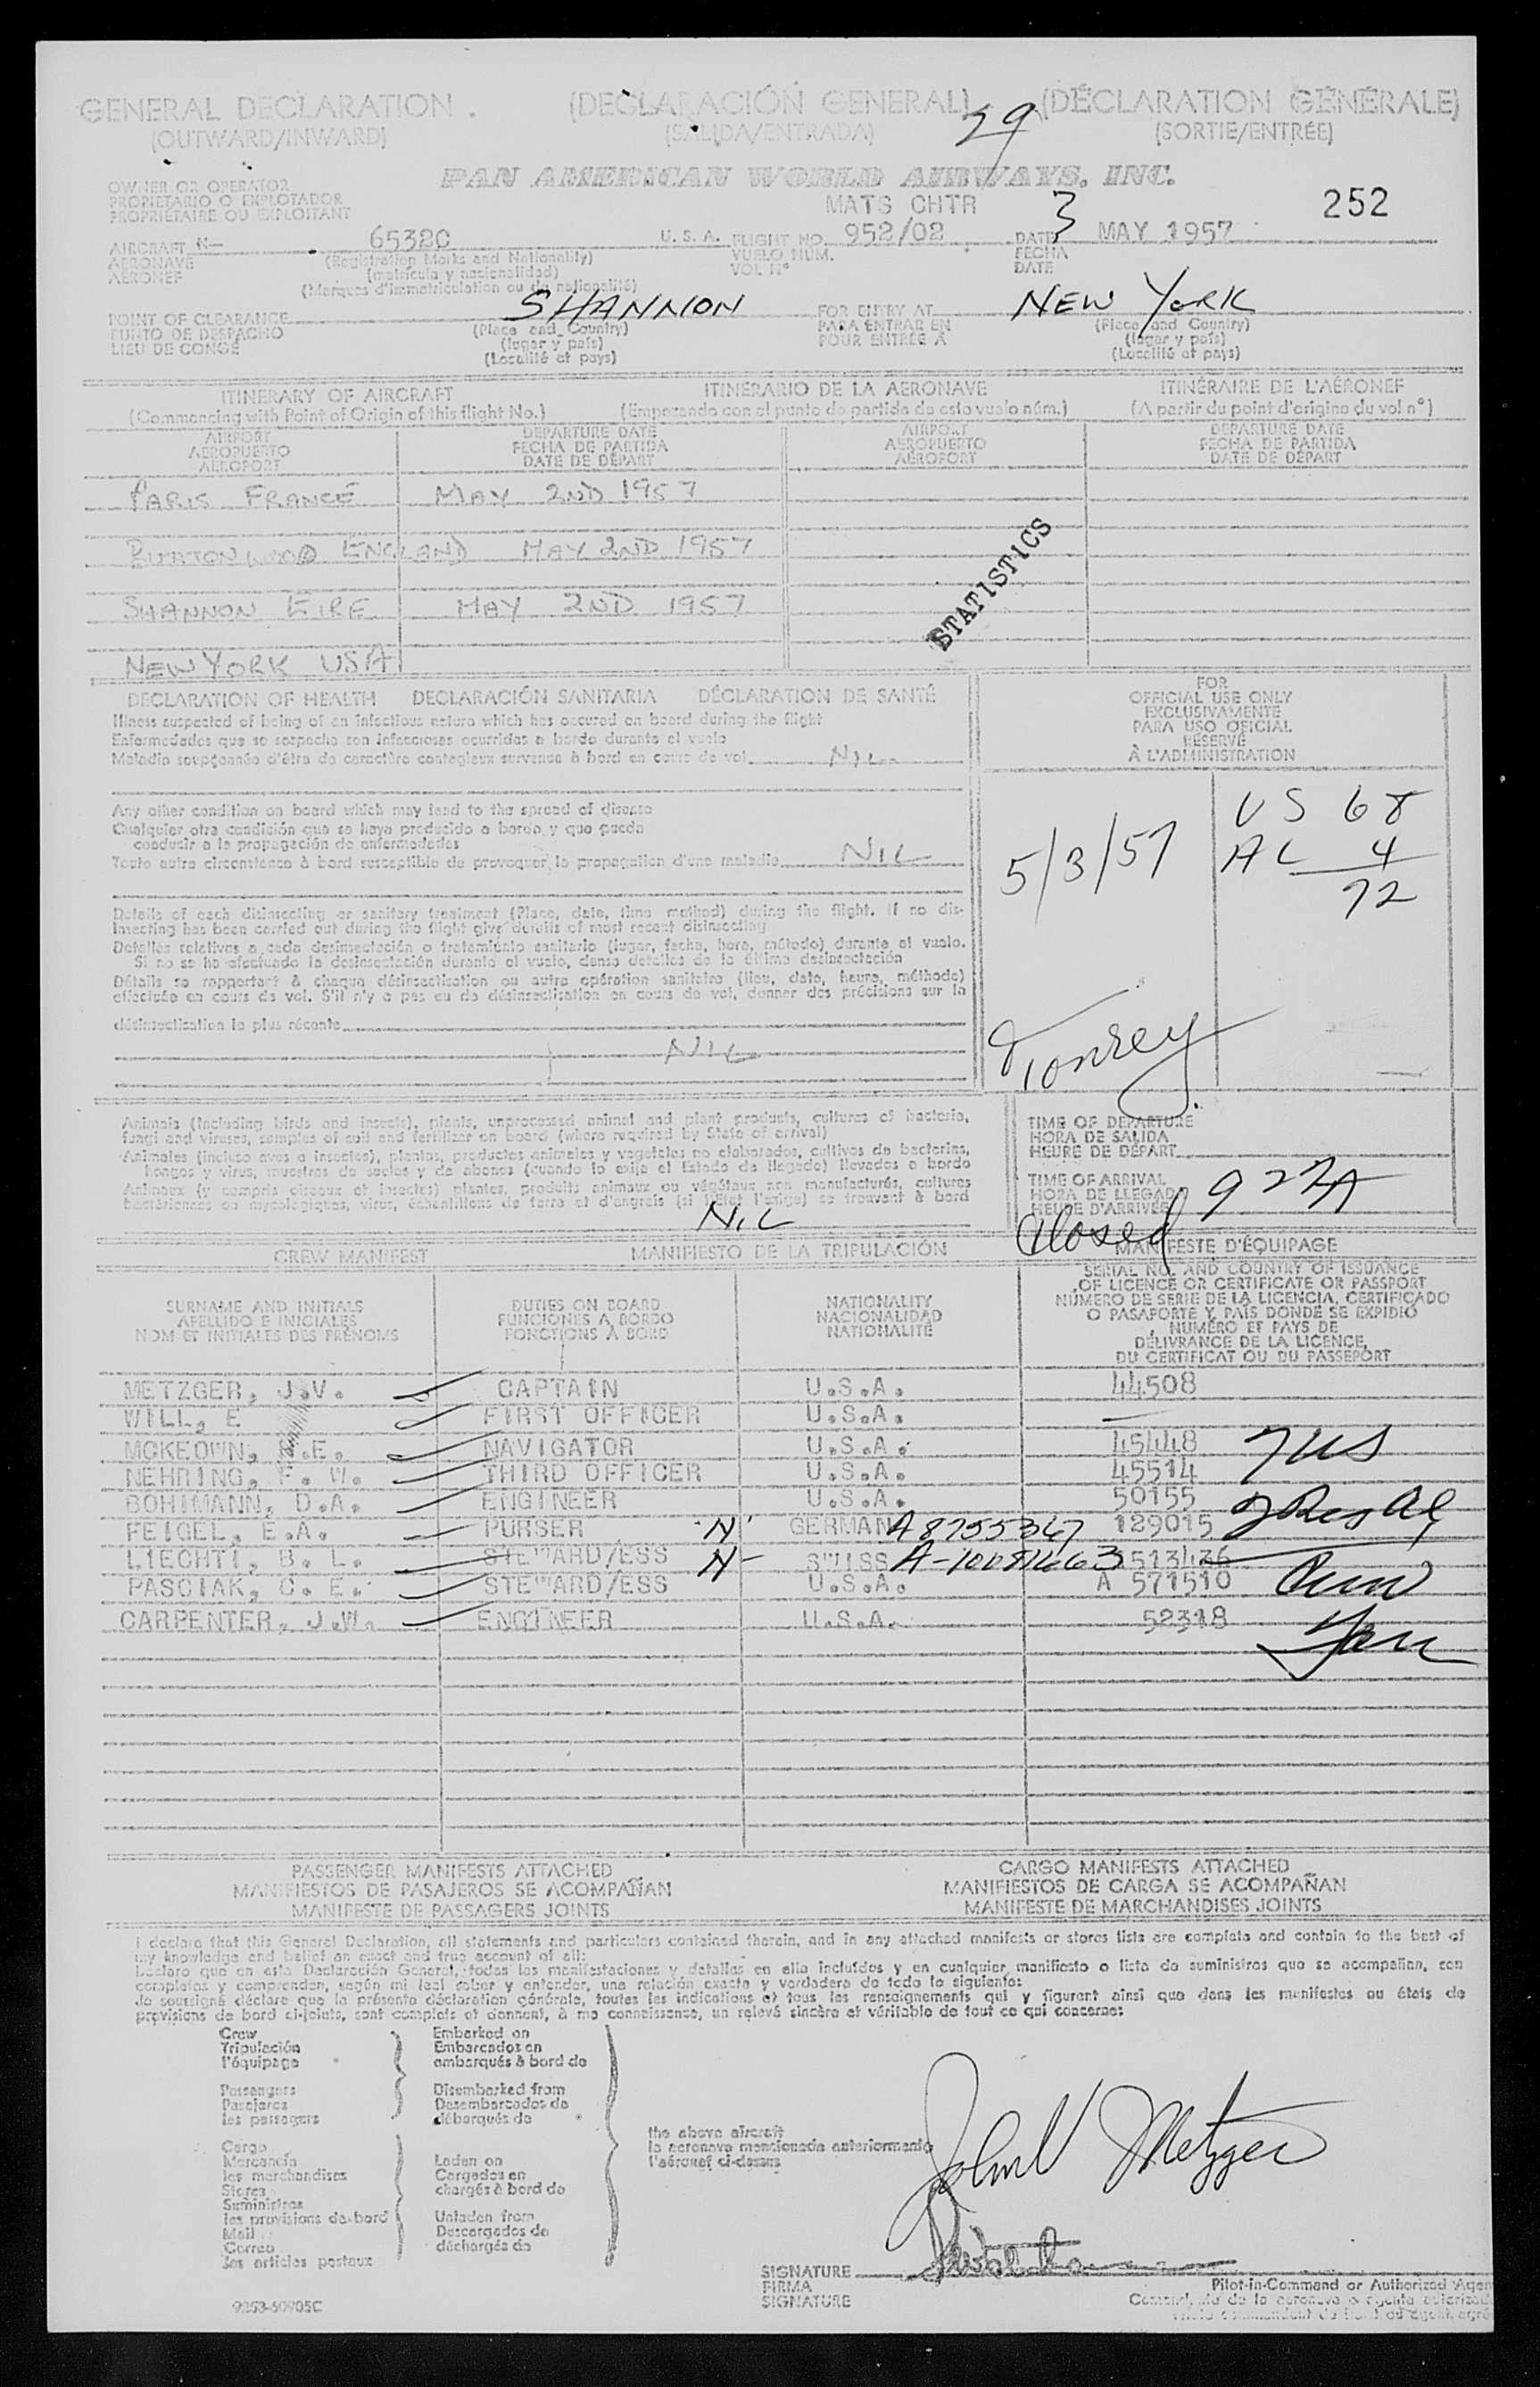 GENERAL DECLARATION (DECLARACIÓN GENERAL) (DÉCLARATION GÉNÉRALE)
(OUTWARD/INWARD) (SALIDA/ENTRADA) 29 (SORTIE/ENTRÉE)
PAN AMERICAN WORLD AIRWAYS, INC.
OWNER OR OPERATOR
PROPIETARIO O EXPLOTADOR
PROPRIÉTAIRE OU EXPLOITANT
MATS CHTR
252
AIRCRAFT N— 6532C U.S.A. FLIGHT NO. 952/02 DATE 3 MAY 1957
AERONAVE (Registration Marks and Nationality) VUELO NÚM. FECHA
AÉRONEF (matrícula y nacionalidad) VOL Nº DATE
(Marques d'immatriculation ou de nationalité)
POINT OF CLEARANCE SHANNON FOR ENTRY AT NEW YORK
PUNTO DE DESPACHO (Place and Country) PARA ENTRAR EN (Place and Country)
LIEU DE CONGÉ (lugar y país) POUR ENTRÉE À (lugar y país)
(Localité et pays) (Localité et pays)
ITINERARY OF AIRCRAFT ITINERARIO DE LA AERONAVE ITINÉRAIRE DE L'AÉRONEF
(Commencing with Point of Origin of this flight No.) (Empezando con el punto de partida de este vuelo núm.) (A partir du point d'origine du vol nº)
AIRPORT DEPARTURE DATE AIRPORT DEPARTURE DATE
AEROPUERTO FECHA DE PARTIDA AEROPUERTO FECHA DE PARTIDA
AÉROPORT DATE DE DÉPART AÉROPORT DATE DE DÉPART
PARIS FRANCE MAY 2ND 1957
BURTONWOOD ENGLAND MAY 2ND 1957
SHANNON EIRE MAY 2ND 1957
NEW YORK USA
STATISTICS
DECLARATION OF HEALTH DECLARACIÓN SANITARIA DÉCLARATION DE SANTÉ
Illness suspected of being of an infectious nature which has occured on board during the flight
Enfermedades que se sospecha son infecciosas ocurridas a bordo durante el vuelo
Maladie soupçonnée d'être de caractère contagieux survenue à bord en cours de vol NIL
Any other condition on board which may lead to the spread of disease
Cualquier otra condición que se haya producido a bordo y que pueda
conducir a la propagación de enfermedades
Toute autre circonstance à bord susceptible de provoquer la propagation d'une maladie NIL
Details of each disinsecting or sanitary treatment (Place, date, time method) during the flight. If no dis-
insecting has been carried out during the flight give details of most recent disinsecting
Detalles relativos a cada desinsectación o tratamiento sanitario (lugar, fecha, hora, método) durante el vuelo.
Si no se ha efectuado la desinsectación durante el vuelo, dense detalles de la última desinsectación
Détails se rapportant à chaque désinsectisation ou autre opération sanitaire (lieu, date, heure, méthode)
effectuée en cours de vol. S'il n'y a pas eu de désinsectisation en cours de vol, donner des précisions sur la
désinsectisation la plus récente
NIL
FOR
OFFICIAL USE ONLY
EXCLUSIVAMENTE
PARA USO OFICIAL
RÉSERVÉ
À L'ADMINISTRATION
5/3/57
US 68
AL 4
72
Animals (including birds and insects), plants, unprocessed animal and plant products, cultures of bacteria,
fungi and viruses, samples of soil and fertilizer on board (where required by State of arrival)
Animales (incluso aves e insectos), plantas, productos animales y vegetales no elaborados, cultivos de bacterias,
hongos y virus, muestras de suelos y de abonos (cuando lo exija el Estado de llegada) llevados a bordo
Animaux (y compris oiseaux et insectes) plantes, produits animaux ou végétaux non manufacturés, cultures
bactériennes ou mycologiques, virus, échantillons de terre et d'engrais (si l'État l'exige) se trouvant à bord
NIL
TIME OF DEPARTURE
HORA DE SALIDA
HEURE DE DÉPART
TIME OF ARRIVAL
HORA DE LLEGADA 922A
HEURE D'ARRIVÉE
Closed
CREW MANIFEST MANIFIESTO DE LA TRIPULACIÓN MANIFESTE D'ÉQUIPAGE
SURNAME AND INITIALS
APELLIDO E INICIALES
NOM ET INITIALES DES PRÉNOMS
DUTIES ON BOARD
FUNCIONES A BORDO
FONCTIONS À BORD
NATIONALITY
NACIONALIDAD
NATIONALITÉ
SERIAL NO. AND COUNTRY OF ISSUANCE
OF LICENCE OR CERTIFICATE OR PASSPORT
NÚMERO DE SERIE DE LA LICENCIA, CERTIFICADO
O PASAPORTE Y PAÍS DONDE SE EXPIDIÓ
NUMÉRO ET PAYS DE
DÉLIVRANCE DE LA LICENCE,
DU CERTIFICAT OU DU PASSEPORT
METZGER, J.V. CAPTAIN U.S.A. 44508
WILL, E FIRST OFFICER U.S.A. —
MCKEOWN, .E. NAVIGATOR U.S.A. 45448
NEHRING, F. W. THIRD OFFICER U.S.A. 45514
BOHIMANN, D.A. ENGINEER U.S.A. 50155
FEIGEL, E.A. PURSER N GERMAN A8755367 129015
LIECHTI, B. L. STEWARD/ESS N- SWISS A-10081663 513436
PASCIAK, C. E. STEWARD/ESS U.S.A. A 571510
CARPENTER, J.W. ENGINEER U.S.A. 52318
7 US
2 Res Al
PASSENGER MANIFESTS ATTACHED CARGO MANIFESTS ATTACHED
MANIFIESTOS DE PASAJEROS SE ACOMPAÑAN MANIFIESTOS DE CARGA SE ACOMPAÑAN
MANIFESTE DE PASSAGERS JOINTS MANIFESTE DE MARCHANDISES JOINTS
I declare that this General Declaration, all statements and particulars contained therein, and in any attached manifests or stores lists are complete and contain to the best of
my knowledge and belief an exact and true account of all:
Declaro que en esta Declaración General, todas las manifestaciones y detalles en ella incluídos y en cualquier manifiesto o lista de suministros que se acompañan, son
completos y comprenden, según mi leal saber y entender, una relación exacta y verdadera de todo lo siguiente:
Je soussigné déclare que la présente déclaration générale, toutes les indications et tous les renseignements qui y figurent ainsi que dans les manifestes ou états de
provisions de bord ci-joints, sont complets et donnent, à ma connaissance, un relevé sincère et véritable de tout ce qui concerne:
Crew Embarked on
Tripulación Embarcados en
l'équipage embarqués à bord de
Passengers Disembarked from
Pasajeros Desembarcados de
les passagers débarqués de
the above aircraft
la aeronave mencionada anteriormente
l'aéronef ci-dessus
Cargo
Mercancía Laden on
les marchandises Cargados en
Stores chargés à bord de
Suministros
les provisions de bord Unladen from
Mail Descargados de
Correo déchargés de
les articles postaux
John V Metzger
SIGNATURE
FIRMA
SIGNATURE
Pilot-in-Command or Authorized Agen
9253-60905C